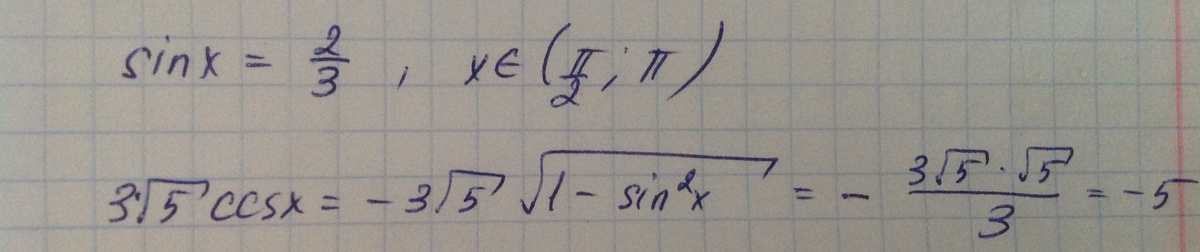 sinx = 2/3 , x∈(π/2; π)
3√5 cosx = -3√5 √(1 - sin²x) = - (3√5 · √5)/3 = -5